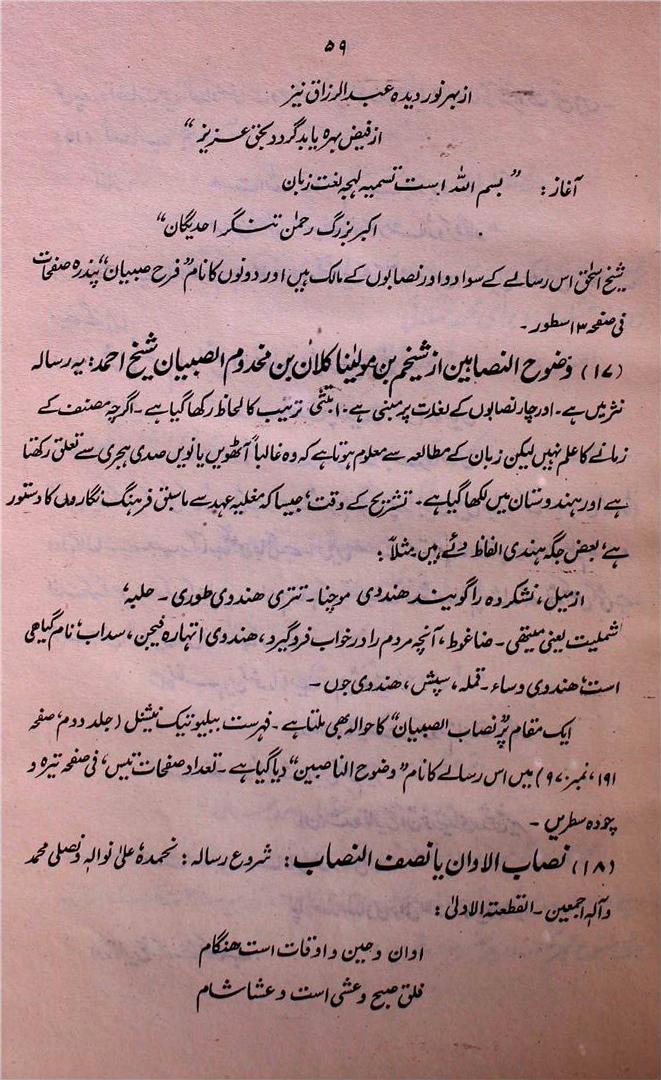 ۵۹
از بہر نور دیدہ عبد الرزاق نیز
از فیض بہرہ یابد گردد بحق عزیز “
آغاز: ” بسم اللہ است تسمیہ لہجہ لغت زبان
اکبر بزرگ رحمٰن تنگر احدیگان“
شیخ اسحٰق اس رسالے کے سوا دو اور نصابوں کے مالک ہیں اور دونوں کا نام ”فرح صبیان“ پندرہ صفحات
فی صفحہ ۱۳ سطور ۔
(۱۷) وضوح النصابین از شیخم بن مولینا کلان بن مخدوم الصبیان شیخ احمد: یہ رسالہ
نثر میں ہے۔ اور چار نصابوں کے لغات پر مبنی ہے۔ ابتثی ترتیب کا لحاظ رکھا گیا ہے۔ اگرچہ مصنف کے
زمانے کا علم نہیں لیکن زبان کے مطالعہ سے معلوم ہوتا ہے کہ وہ غالباً آٹھویں یا نویں صدی ہجری سے تعلق رکھتا
ہے اور ہندوستان میں لکھا گیا ہے۔ تشریح کے وقت، جیسا کہ مغلیہ عہد سے ماسبق فرہنگ نگاروں کا دستور
ہے، بعض جگہ ہندی الفاظ دئے ہیں مثلاً:
ازمیل، نشکردہ را گویند ھندوی موچنا۔ تتری ھندوی طوری ۔ حلبہ،
شملیت یعنی میتھی۔ ضاغوط، آنچہ مردم را در خواب فروگیرد، ھندوی انتھارہ فیجن، سداب، نام گیاھی
است، ھندوی وساء۔ قملہ، سپش، ھندوی جوں ۔
ایک مقام پر ”نصاب الصبیان“ کا حوالہ بھی ملتا ہے۔ فہرست ببلیوتیک نیشنل (جلد دوم، صفحہ
۱۹۱، نمبر ۹۷۰) میں اس رسالے کا نام ” وضوح الناصبین“ دیا گیا ہے۔ تعداد صفحات تیس، فی صفحہ تیرہ و
چودہ سطریں ۔
(۱۸) نصاب الاوان یا نصف النصاب: شروع رسالہ: نحمدہٗ علیٰ نوالہ و نصلی محمد
و آلہ اجمعین۔ القطعتہ الاولیٰ:
اوان و حین و اوقات است ھنگام
فلق صبح و عشی است و عشا شام